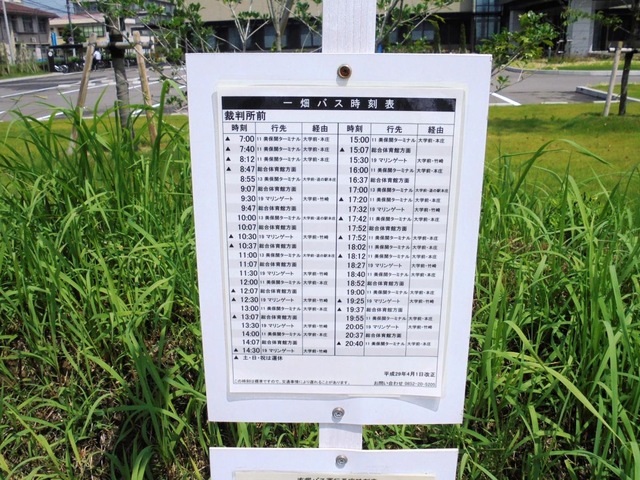 一畑バス時刻表
裁判所前
時刻 行先 経由
▲ 7:00 11 美保関ターミナル 大学前・本庄
▲ 7:40 11 美保関ターミナル 大学前・本庄
▲ 8:12 11 美保関ターミナル 大学前・本庄
▲ 8:47 総合体育館方面
8:55 13 美保関ターミナル 大学前・道の駅本庄
9:07 総合体育館方面
9:30 19 マリンゲート 大学前・竹崎
9:47 総合体育館方面
10:00 13 美保関ターミナル 大学前・道の駅本庄
10:07 総合体育館方面
▲ 10:30 19 マリンゲート 大学前・竹崎
▲ 10:37 総合体育館方面
11:00 13 美保関ターミナル 大学前・道の駅本庄
11:07 総合体育館方面
11:30 19 マリンゲート 大学前・竹崎
12:00 11 美保関ターミナル 大学前・本庄
▲ 12:07 総合体育館方面
▲ 12:30 19 マリンゲート 大学前・竹崎
13:00 11 美保関ターミナル 大学前・本庄
▲ 13:07 総合体育館方面
13:30 19 マリンゲート 大学前・竹崎
14:00 11 美保関ターミナル 大学前・本庄
14:07 総合体育館方面
▲ 14:30 19 マリンゲート 大学前・竹崎
▲ 土・日・祝は運休
時刻 行先 経由
15:00 11 美保関ターミナル 大学前・本庄
▲ 15:07 総合体育館方面
15:30 19 マリンゲート 大学前・竹崎
16:00 11 美保関ターミナル 大学前・本庄
16:37 総合体育館方面
17:00 13 美保関ターミナル 大学前・道の駅本庄
▲ 17:20 11 美保関ターミナル 大学前・本庄
17:32 19 マリンゲート 大学前・竹崎
▲ 17:42 11 美保関ターミナル 大学前・本庄
17:52 総合体育館方面
▲ 17:52 11 美保関ターミナル 大学前・本庄
18:02 11 美保関ターミナル 大学前・本庄
▲ 18:12 総合体育館方面
18:27 19 マリンゲート 大学前・竹崎
18:40 11 美保関ターミナル 大学前・本庄
18:52 総合体育館方面
19:00 11 美保関ターミナル 大学前・本庄
▲ 19:25 19 マリンゲート 大学前・竹崎
▲ 19:37 総合体育館方面
19:55 11 美保関ターミナル 大学前・本庄
20:05 19 マリンゲート 大学前・竹崎
20:37 総合体育館方面
▲ 20:40 11 美保関ターミナル 大学前・本庄
平成29年4月1日改正
この時刻は標準ですので、交通事情により遅れることがあります。
お問い合わせ 0852-20-5205